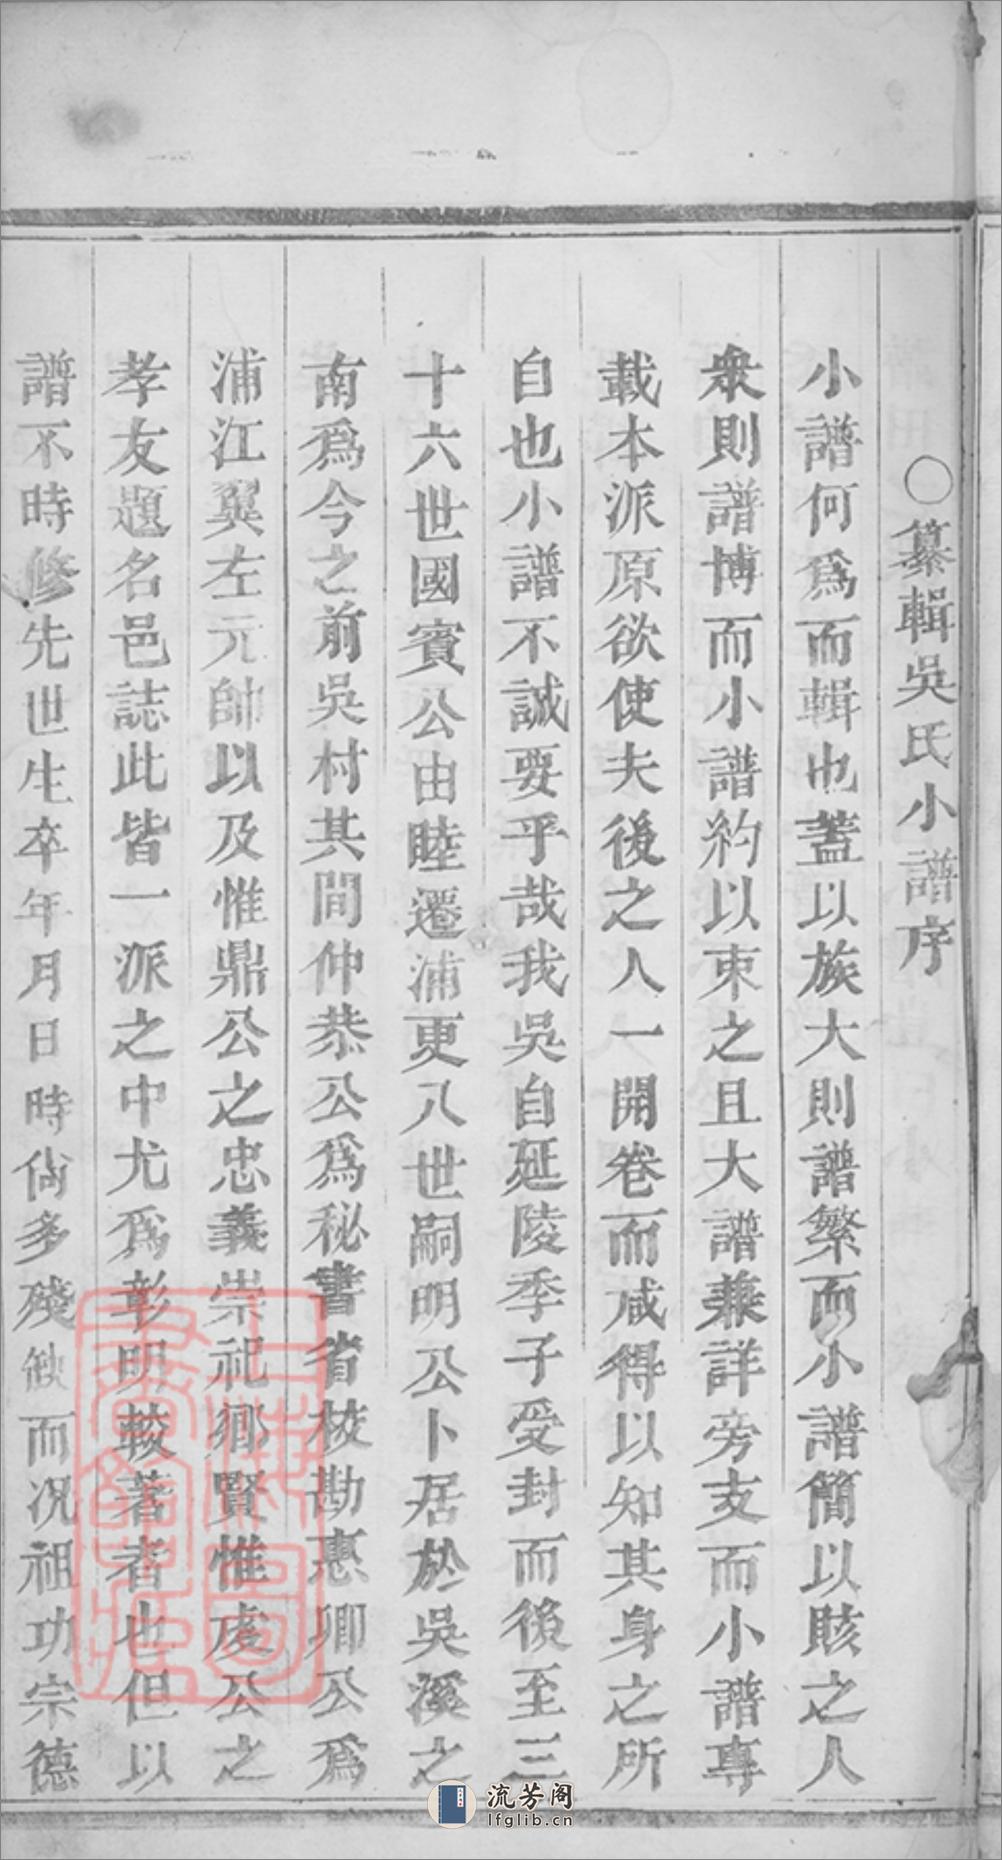 ○纂輯吳氏小譜序
小譜何爲而輯也蓋以族大則譜繁而小譜簡以賅之人
衆則譜博而小譜約以束之且大譜兼詳旁支而小譜專
載本派原欲使夫後之人一開卷而咸得以知其身之所
自也小譜不誠要乎哉我吳自延陵季子受封而後至三
十六世國賓公由睦遷浦更八世嗣明公卜居於吳溪之
南爲今之前吳村其間仲恭公爲秘書省校勘惠卿公爲
浦江翼左元帥以及惟鼎公之忠義崇祀鄉賢惟虔公之
孝友題名邑誌此皆一派之中尤爲彰明較著者也但以
譜不時修先世生卒年月日時尙多殘缺而况祖功宗德
上海圖書館藏
流芳阁
lfglib.cn